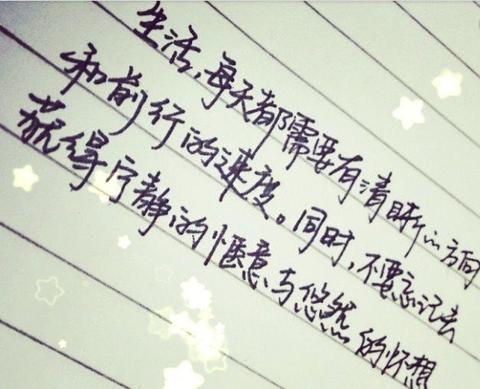 生活,每天都需要有清晰的方向
和前行的速度。同时,不要忘记去
获得宁静的惬意与悠然的怀想